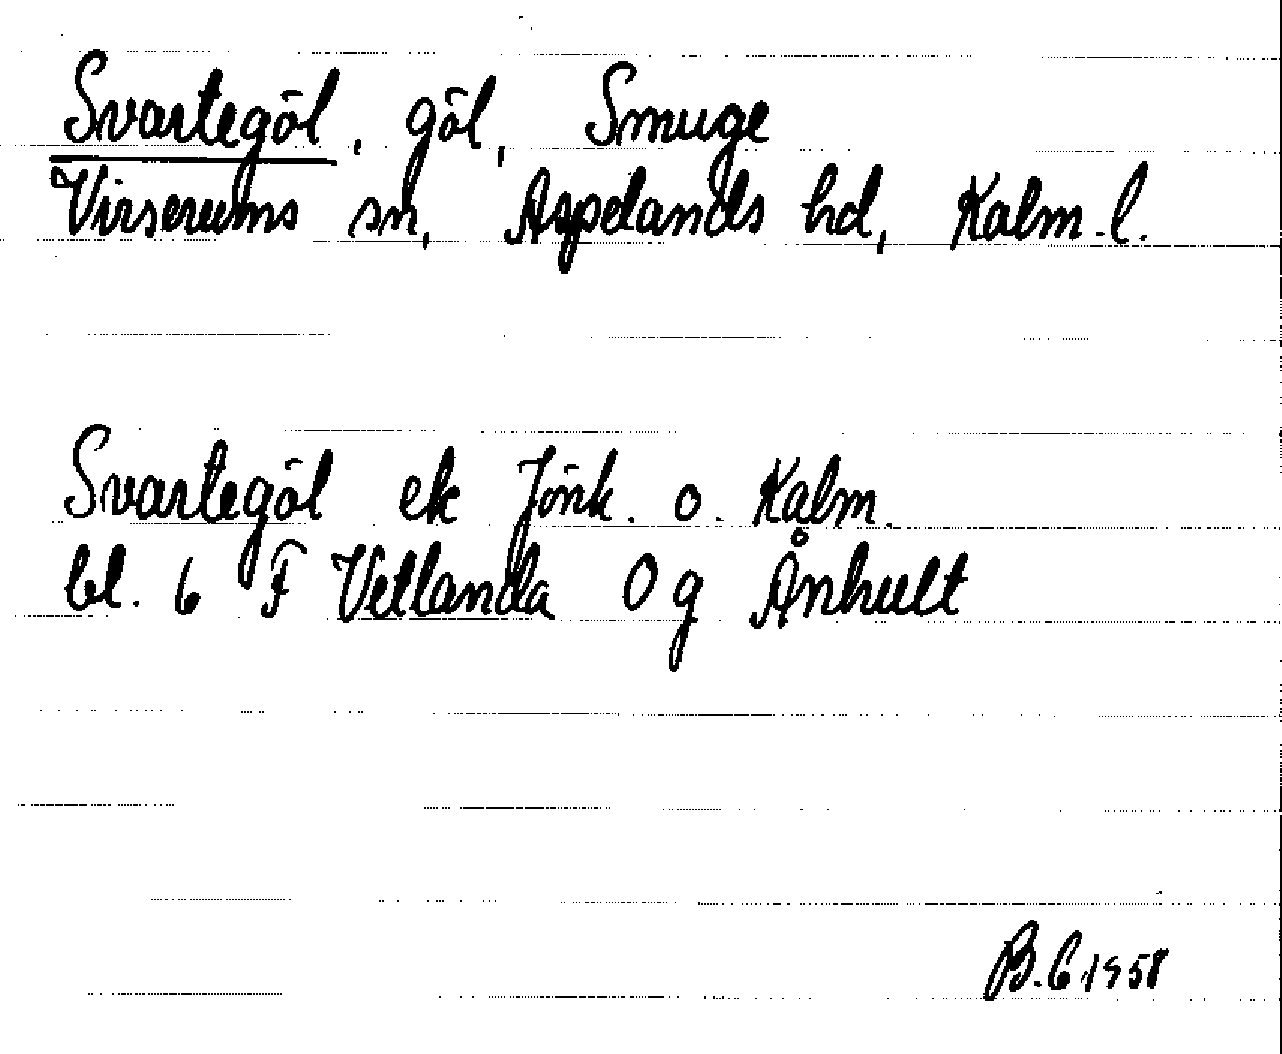 Svartegöl, göl, Smuge
Virserums sn, Aspelands hd, Kalm. l.
Svartegöl ek Jönk. o. Kalm.
bl. 6 F Vetlanda 0 g Ånhult
B. G 1958